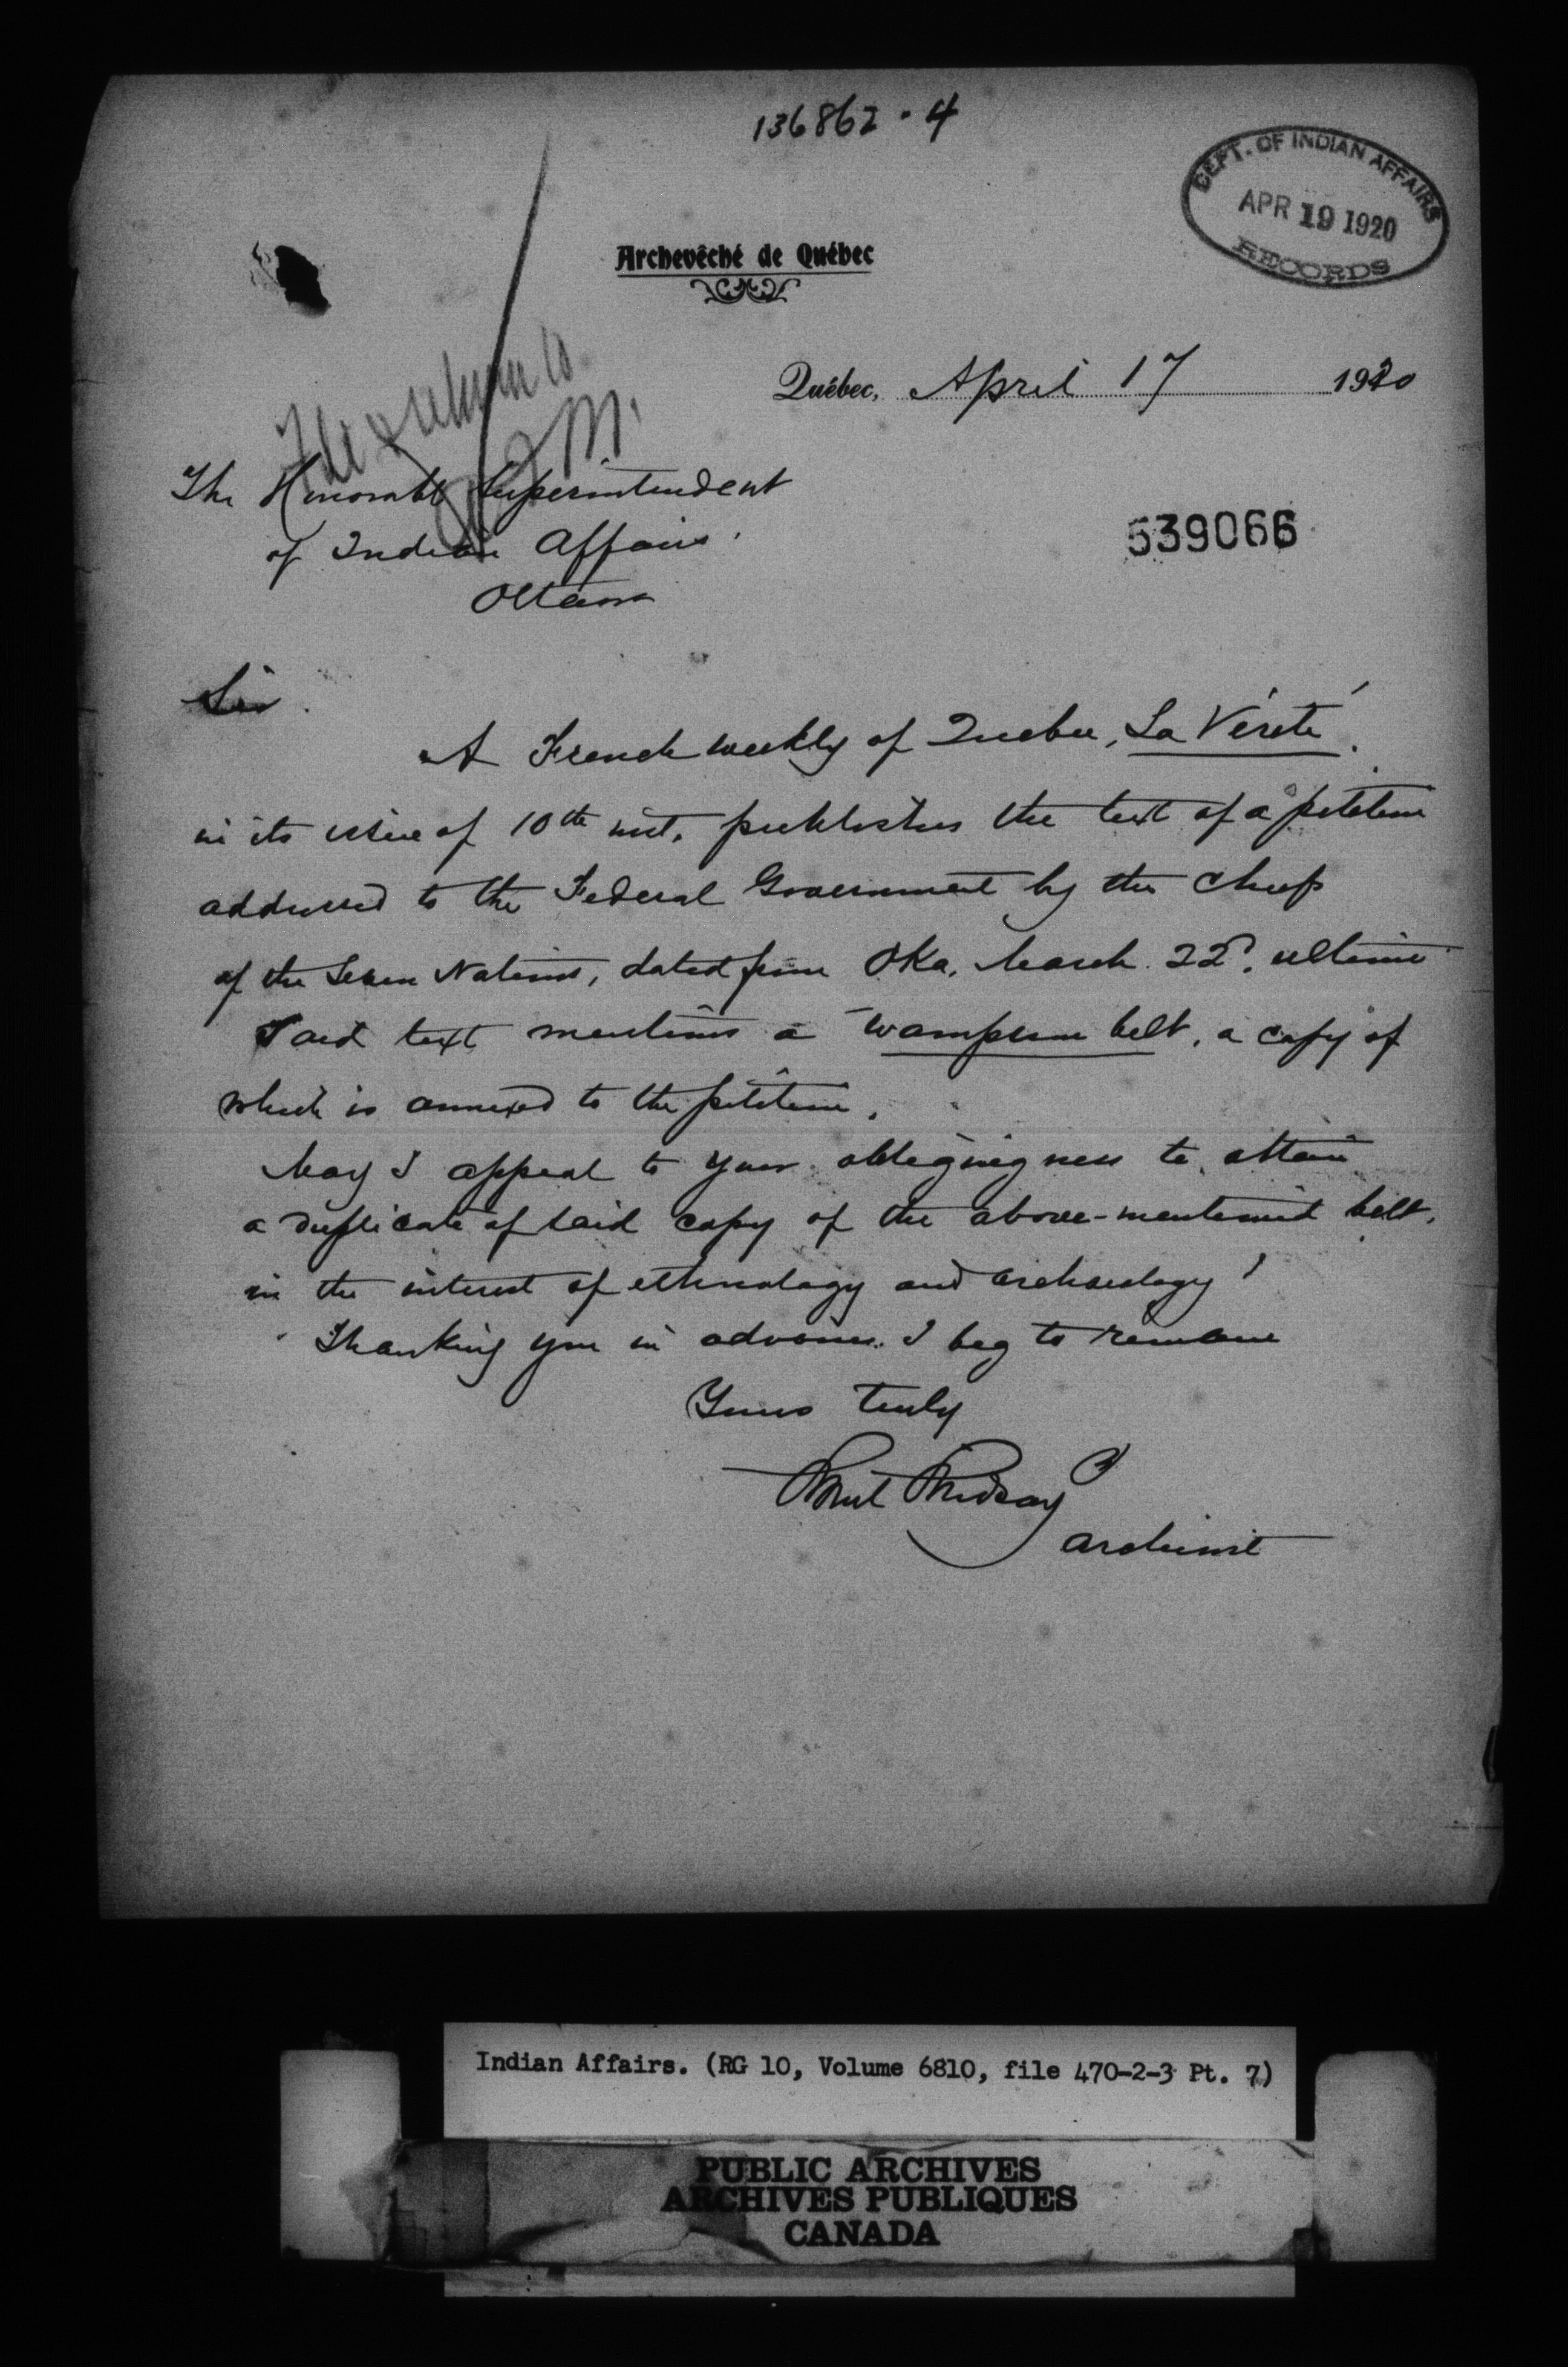 136862 · 4
DEPT. OF INDIAN AFFAIRS
APR 19 1920
RECORDS
Archevêché de Québec
Québec, April 17 1920
The Honorable Superintendent
of Indian Affairs.
Ottawa
539066
Sir.
A French weekly of Quebec, La Vérité,
in its issue of 10th inst. publishes the text of a petition
addressed to the Federal Government by the chiefs
of the Seven Nations, dated from Oka, March 22d. ultimo
Said text mentions a wampum belt, a copy of
which is annexed to the petition.
May I appeal to your obligingness to obtain
a duplicate of said copy of the above-mentioned belt,
in the interest of ethnology and archaeology?
Thanking you in advance. I beg to remain
Yours truly
Lindsay
archivist
Indian Affairs. (RG 10, Volume 6810, file 470-2-3 Pt. 7)
PUBLIC ARCHIVES
ARCHIVES PUBLIQUES
CANADA